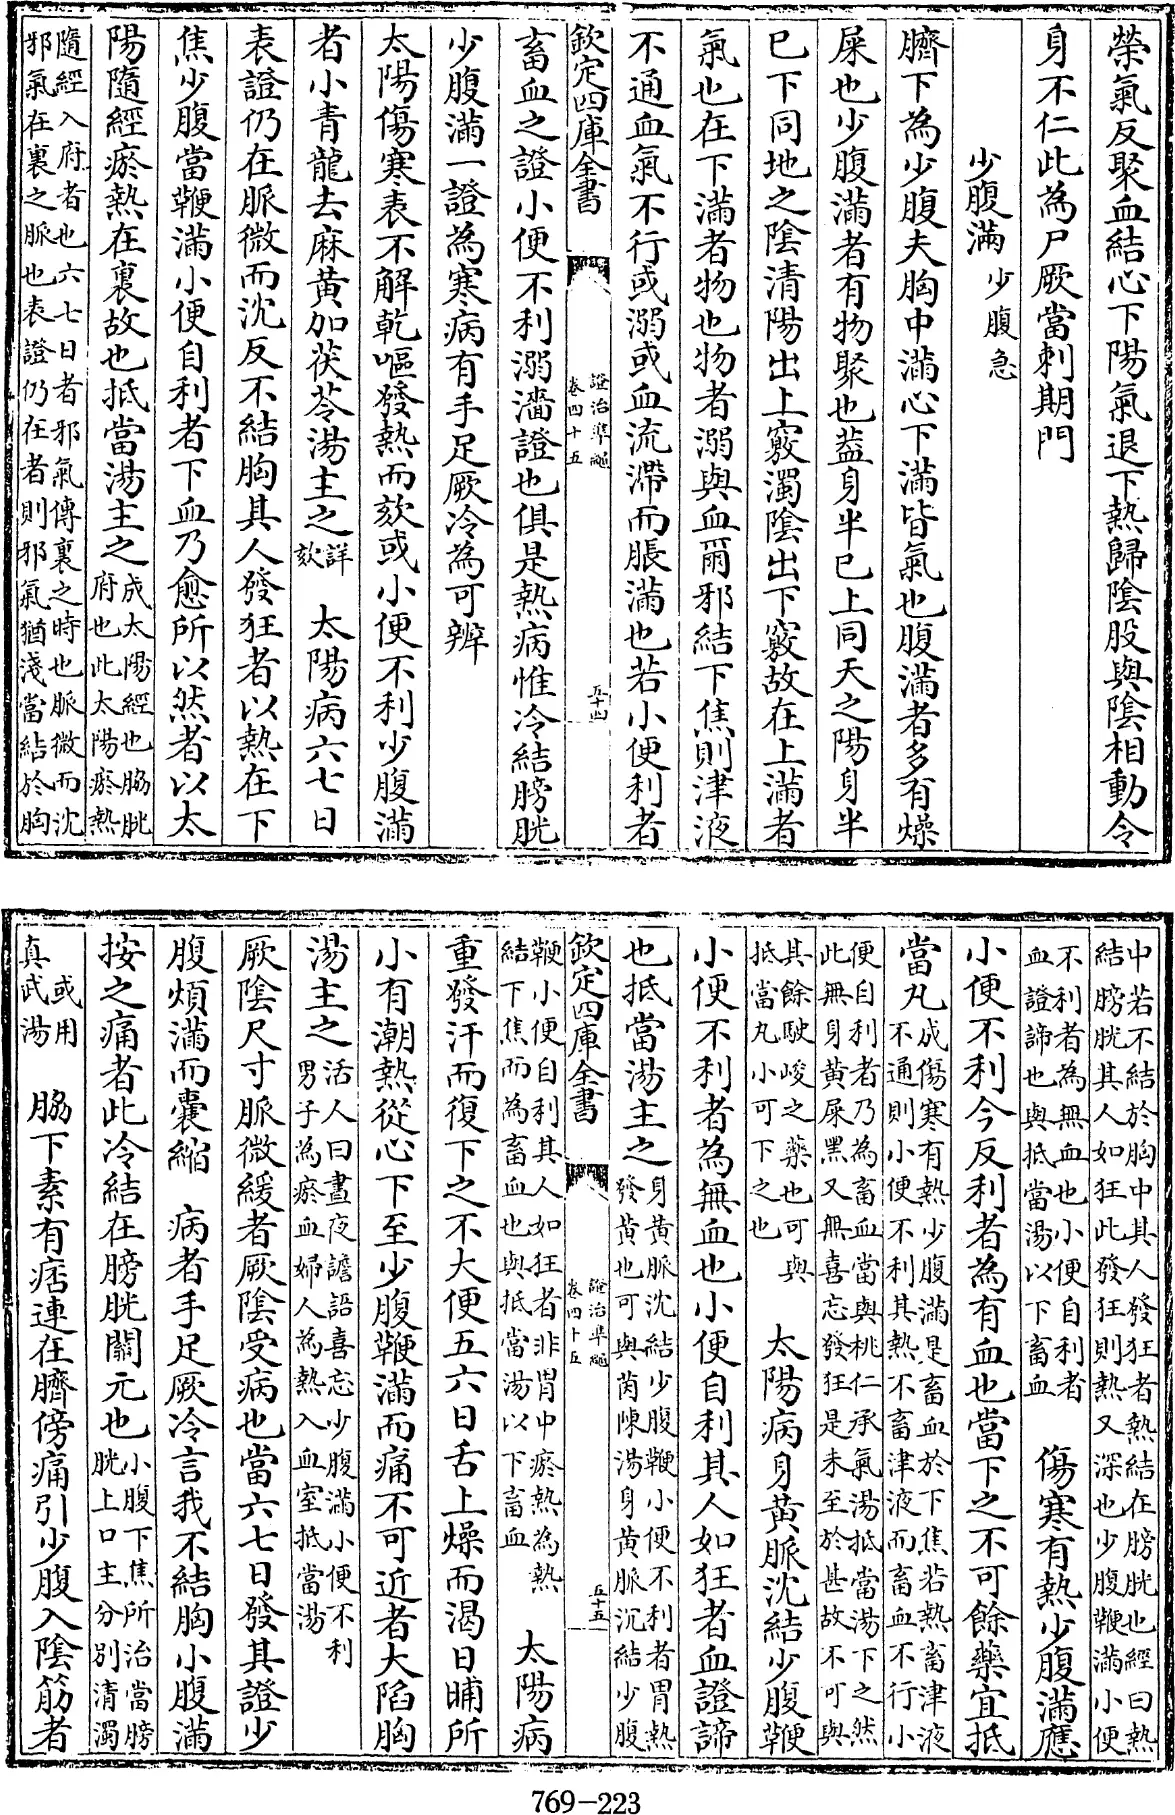 榮氣反聚血結心下陽氣退下熱歸陰股與陰相動令
身不仁此為尸厥當刺期門
少腹滿 少腹急
臍下為少腹夫胸中滿心下滿皆氣也腹滿者多有燥
屎也少腹滿者有物聚也葢身半已上同天之陽身半
已下同地之陰清陽出上竅濁陰出下竅故在上滿者
氣也在下滿者物也物者溺與血爾邪結下焦則津液
不通血氣不行或溺或血流滯而脹滿也若小便利者
欽定四庫全書
證治準繩
卷四十五
五十四
畜血之證小便不利溺濇證也俱是熱病惟冷結膀胱
少腹滿一證為寒病有手足厥冷為可辨
太陽傷寒表不解乾嘔發熱而欬或小便不利少腹滿
者小青龍去麻黄加茯苓湯主之詳欬 太陽病六七日
表證仍在脈微而沈反不結胸其人發狂者以熱在下
焦少腹當鞕滿小便自利者下血乃愈所以然者以太
陽隨經瘀熱在裏故也抵當湯主之成太陽經也膀胱府也此太陽瘀熱
隨經入府者也六七日者邪氣傳裏之時也脈微而沈
邪氣在裏之脈也表證仍在者則邪氣猶淺當結於胸
中若不結於胸中其人發狂者熱結在膀胱也經曰熱
結膀胱其人如狂此發狂則熱又深也少腹鞕滿小便
不利者為無血也小便自利者血證諦也與抵當湯以下畜血 傷寒有熱少腹滿應
小便不利今反利者為有血也當下之不可餘藥宜抵
當丸成傷寒有熱少腹滿是畜血於下焦若熱畜津液不通則小便不利其熱不畜津液而畜血不行小
便自利者乃為畜血當與桃仁承氣湯抵當湯下之然
此無身黄屎黑又無喜忘發狂是未至於甚故不可與
其餘駛峻之藥也可與抵當丸小可下之也 太陽病身黄脈沈結少腹鞕
小便不利者為無血也小便自利其人如狂者血證諦
也抵當湯主之身黄脈沈結少腹鞕小便不利者胃熱發黄也可與茵陳湯身黄脈沉結少腹
欽定四庫全書
證治準繩
卷四十五
五十五
鞕小便自利其人如狂者非胃中瘀熱為熱結下焦而為畜血也與抵當湯以下畜血 太陽病
重發汗而復下之不大便五六日舌上燥而渴日晡所
小有潮熱從心下至少腹鞕滿而痛不可近者大陷胸
湯主之活人曰晝夜譫語喜忘少腹滿小便不利男子為瘀血婦人為熱入血室抵當湯
厥陰尺寸脈微緩者厥陰受病也當六七日發其證少
腹煩滿而囊縮 病者手足厥冷言我不結胸小腹滿
按之痛者此冷結在膀胱關元也小腹下焦所治當膀胱上口主分別清濁
或用真武湯 脇下素有痞連在臍傍痛引少腹入陰筋者
769-223